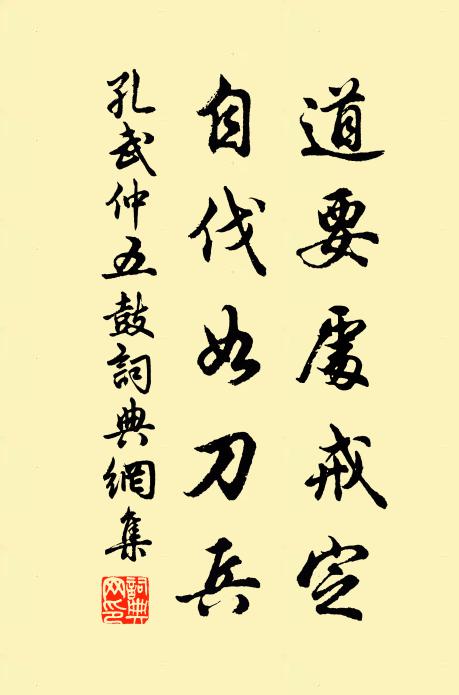 道要處戒定
自伐如刀兵
孔武仲五鼓詞典網集
詞典網印